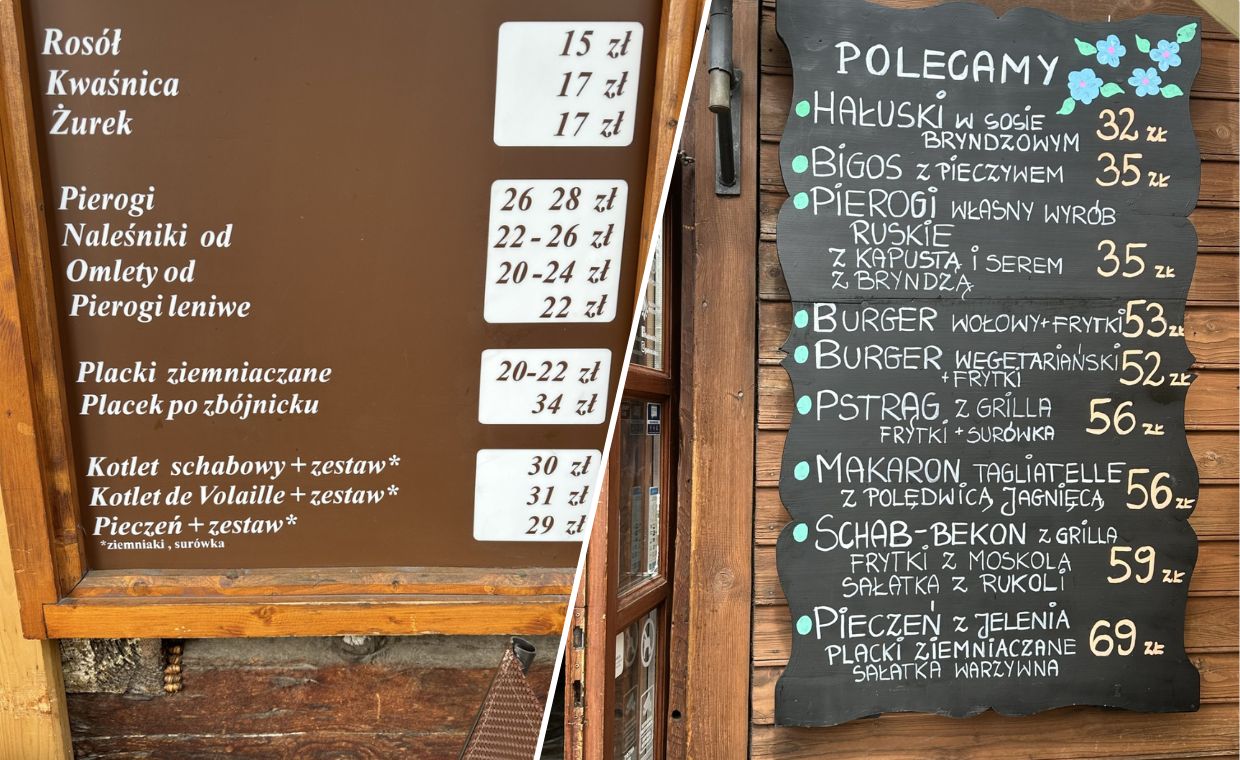 Rosół 15 zł
Kwaśnica 17 zł
Żurek 17 zł
Pierogi 26 28 zł
Naleśniki od 22-26 zł
Omlety od 20-24 zł
Pierogi leniwe 22 zł
Placki ziemniaczane 20-22 zł
Placek po zbójnicku 34 zł
Kotlet schabowy + zestaw* 30 zł
Kotlet de Volaille + zestaw* 31 zł
Pieczeń + zestaw* 29 zł
*ziemniaki , surówka
POLECAMY
HAŁUSKI W SOSIE
BRYNDZOWYM 32 ZŁ
BIGOS Z PIECZYWEM 35 ZŁ
PIEROGI WŁASNY WYRÓB
RUSKIE
Z KAPUSTĄ I SEREM 35 ZŁ
Z BRYNDZĄ
BURGER WOŁOWY+FRYTKI 53 ZŁ
BURGER WEGETARIAŃSKI 52 ZŁ
+FRYTKI
PSTRĄG Z GRILLA 56 ZŁ
FRYTKI + SURÓWKA
MAKARON TAGLIATELLE
Z POLĘDWICĄ JAGNIĘCĄ 56 ZŁ
SCHAB-BEKON Z GRILLA
FRYTKI Z MOSKOLA 59 ZŁ
SAŁATKA Z RUKOLI
PIECZEŃ Z JELENIA
PLACKI ZIEMNIACZANE 69 ZŁ
SAŁATKA WARZYWNA